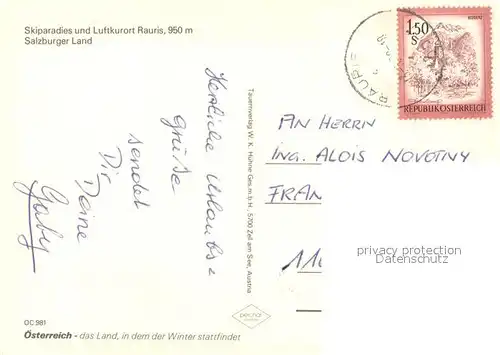 Skiparadies und Luftkurort Rauris, 950 m
Salzburger Land
Herzliche Urlaubs=
grüße
sendet
Dir
Deine
Gaby
Tauernverlag W. K. Hühne Ges.m.b.H., 5700 Zell am See, Austria
1.50
S
BLUDENZ
REPUBLIK ÖSTERREICH
RAURIS
AN HERRN
ING. ALOIS NOVOTNY
FRAN
privacy protection
www.ansichtskartenversand.com
OC 981
Österreich - das Land, in dem der Winter stattfindet